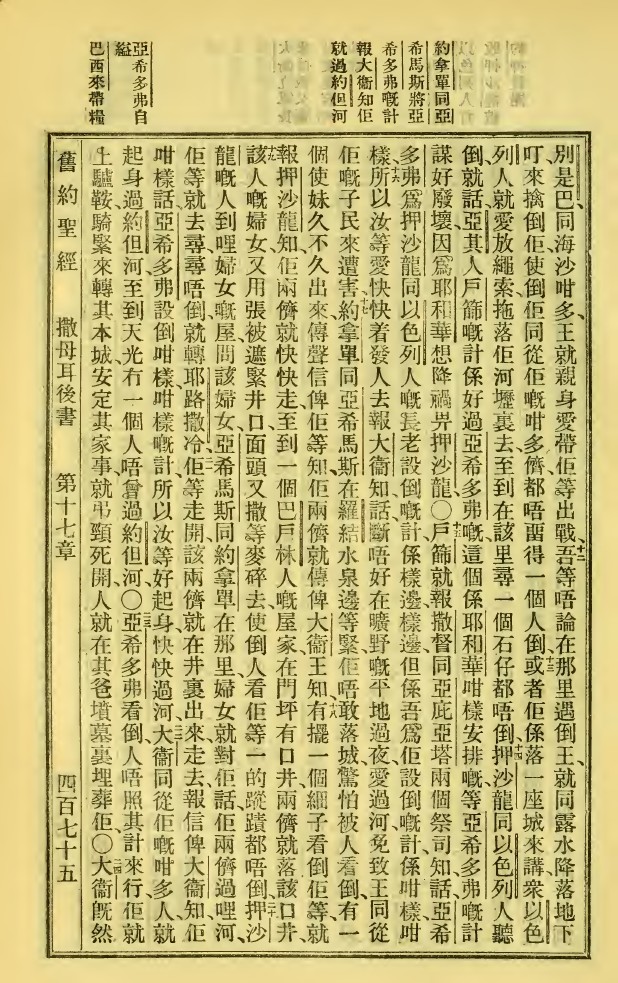 約拿單同亞
希馬斯將亞
希多弗嘅計
報大衞知佢
就過約但河
亞希多弗自
縊
巴西來帶糧
別是巴、同海沙咁多、王就親身愛帶佢等出戰、十二吾等唔論在那里遇倒王、就同露水降落地下
叮來擒倒佢、使倒佢同從佢嘅咁多儕都唔畱得一個人倒、十三或者佢係落一座城來講、衆以色
列人就愛放繩索拖落佢河壢裏去、至到在該里尋一個石仔都唔倒、十四押沙龍同以色列人聽
倒、就話、亞其人戶篩嘅計係好過亞希多弗嘅、這個係耶和華咁樣安排嘅、等亞希多弗嘅計
謀好廢壞、因爲耶和華想降禍畀押沙龍、〇十五戶篩就報撒督同亞庇亞塔兩個祭司知、話、亞希
多弗爲押沙龍同以色列人嘅長老設倒嘅計係樣邊樣邊、但係吾爲佢設倒嘅計、係咁樣咁
樣、十六所以汝等愛快快着發人去報大衞知、話、斷唔好在曠野嘅平地過夜、愛過河、免致王同從
佢嘅子民來遭害、十七約拿單同亞希馬斯在羅結水泉邊等緊、佢唔敢落城、驚怕被人看倒、有一
個使妹久不久出來傳聲信俾佢等知、佢兩儕就傳俾大衞王知、十八有擺一個細子看倒佢等、就
報押沙龍知、佢兩儕就快快走、至到一個巴戶林人嘅屋家、在門坪有口井、兩儕就落該口井、
十九該人嘅婦女、又用張被遮緊井口、面頭又撒等麥碎去、使倒人看佢等一的蹤蹟都唔倒、二十押沙
龍嘅人到哩婦女嘅屋問該婦女、亞希馬斯同約拿單在那里、婦女就對佢話、佢兩儕過哩河、
佢等就去尋、尋唔倒、就轉耶路撒冷、佢等走開、該兩儕就在井裏出來走去、報信俾大衞知、佢
咁樣話、亞希多弗設倒咁樣咁樣嘅計、所以汝等好起身快快過河、二二大衞同從佢嘅咁多人、就
起身過約但河、至到天光冇一個人唔曾過約但河、〇二三亞希多弗看倒人唔照其計來行、佢就
上驢鞍騎緊來轉其本城、安定其家事、就弔頸死開、人就在其爸墳墓裏埋葬佢、〇二四大衞旣然
舊約聖經　撒母耳後書　第十七章　四百七十五